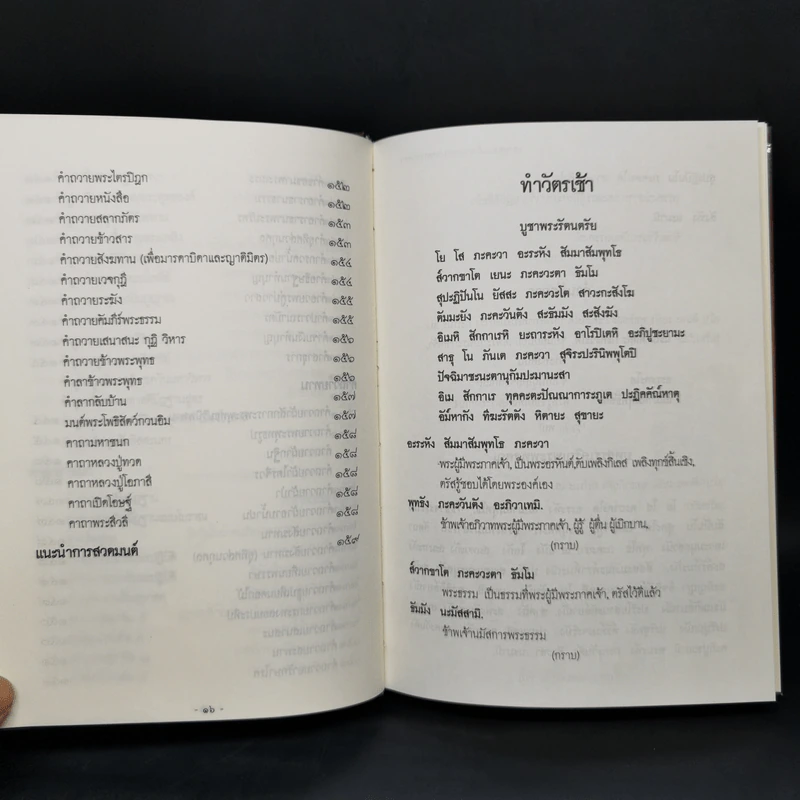 คำถวายพระไตรปิฎก ๑๕๒
คำถวายหนังสือ ๑๕๒
คำถวายสลากภัตร ๑๕๓
คำถวายข้าวสาร ๑๕๓
คำถวายสังฆทาน (เพื่อมารดาบิดาและญาติมิตร) ๑๕๔
คำถวายเวจกุฎี ๑๕๔
คำถวายระฆัง ๑๕๕
คำถวายคัมภีร์พระธรรม ๑๕๕
คำถวายเสนาสนะ กุฏิ วิหาร ๑๕๖
คำถวายข้าวพระพุทธ ๑๕๖
คำลาข้าวพระพุทธ ๑๕๖
คำลากลับบ้าน ๑๕๗
มนต์พระโพธิสัตว์กวนอิม ๑๕๗
คาถามหาชนก ๑๕๘
คาถาหลวงปู่ทวด ๑๕๘
คาถาหลวงปู่โอภาสี ๑๕๘
คาถาเปิดโอษฐ์ ๑๕๘
คาถาพระสิวลี ๑๕๘
แนะนำการสวดมนต์ ๑๕๙
- ๑๖ -
ทำวัตรเช้า
บูชาพระรัตนตรัย
โย โส ภะคะวา อะระหัง สัมมาสัมพุทโธ
สฺวากขาโต เยนะ ภะคะวะตา ธัมโม
สุปะฏิปันโน ยัสสะ ภะคะวะโต สาวะกะสังโฆ
ตัมมะยัง ภะคะวันตัง สะธัมมัง สะสังฆัง
อิเมหิ สักกาเรหิ ยะถาระหัง อาโรปิเตหิ อะภิปูชะยามะ
สาธุ โน ภันเต ภะคะวา สุจิระปะรินิพพุโตปิ
ปัจฉิมาชะนะตานุกัมปะมานะสา
อิเม สักกาเร ทุคคะตะปัณณาการะภูเต ปะฏิคคัณหาตุ
อัมฺหากัง ทีฆะรัตตัง หิตายะ สุขายะ
อะระหัง สัมมาสัมพุทโธ ภะคะวา
พระผู้มีพระภาคเจ้า, เป็นพระอรหันต์,ดับเพลิงกิเลส เพลิงทุกข์สิ้นเชิง,
ตรัสรู้ชอบได้โดยพระองค์เอง
พุทธัง ภะคะวันตัง อะภิวาเทมิ.
ข้าพเจ้าอภิวาทพระผู้มีพระภาคเจ้า, ผู้รู้ ผู้ตื่น ผู้เบิกบาน,
(กราบ)
สฺวากขาโต ภะคะวะตา ธัมโม
พระธรรม เป็นธรรมที่พระผู้มีพระภาคเจ้า, ตรัสไว้ดีแล้ว
ธัมมัง นะมัสสามิ.
ข้าพเจ้านมัสการพระธรรม
(กราบ)